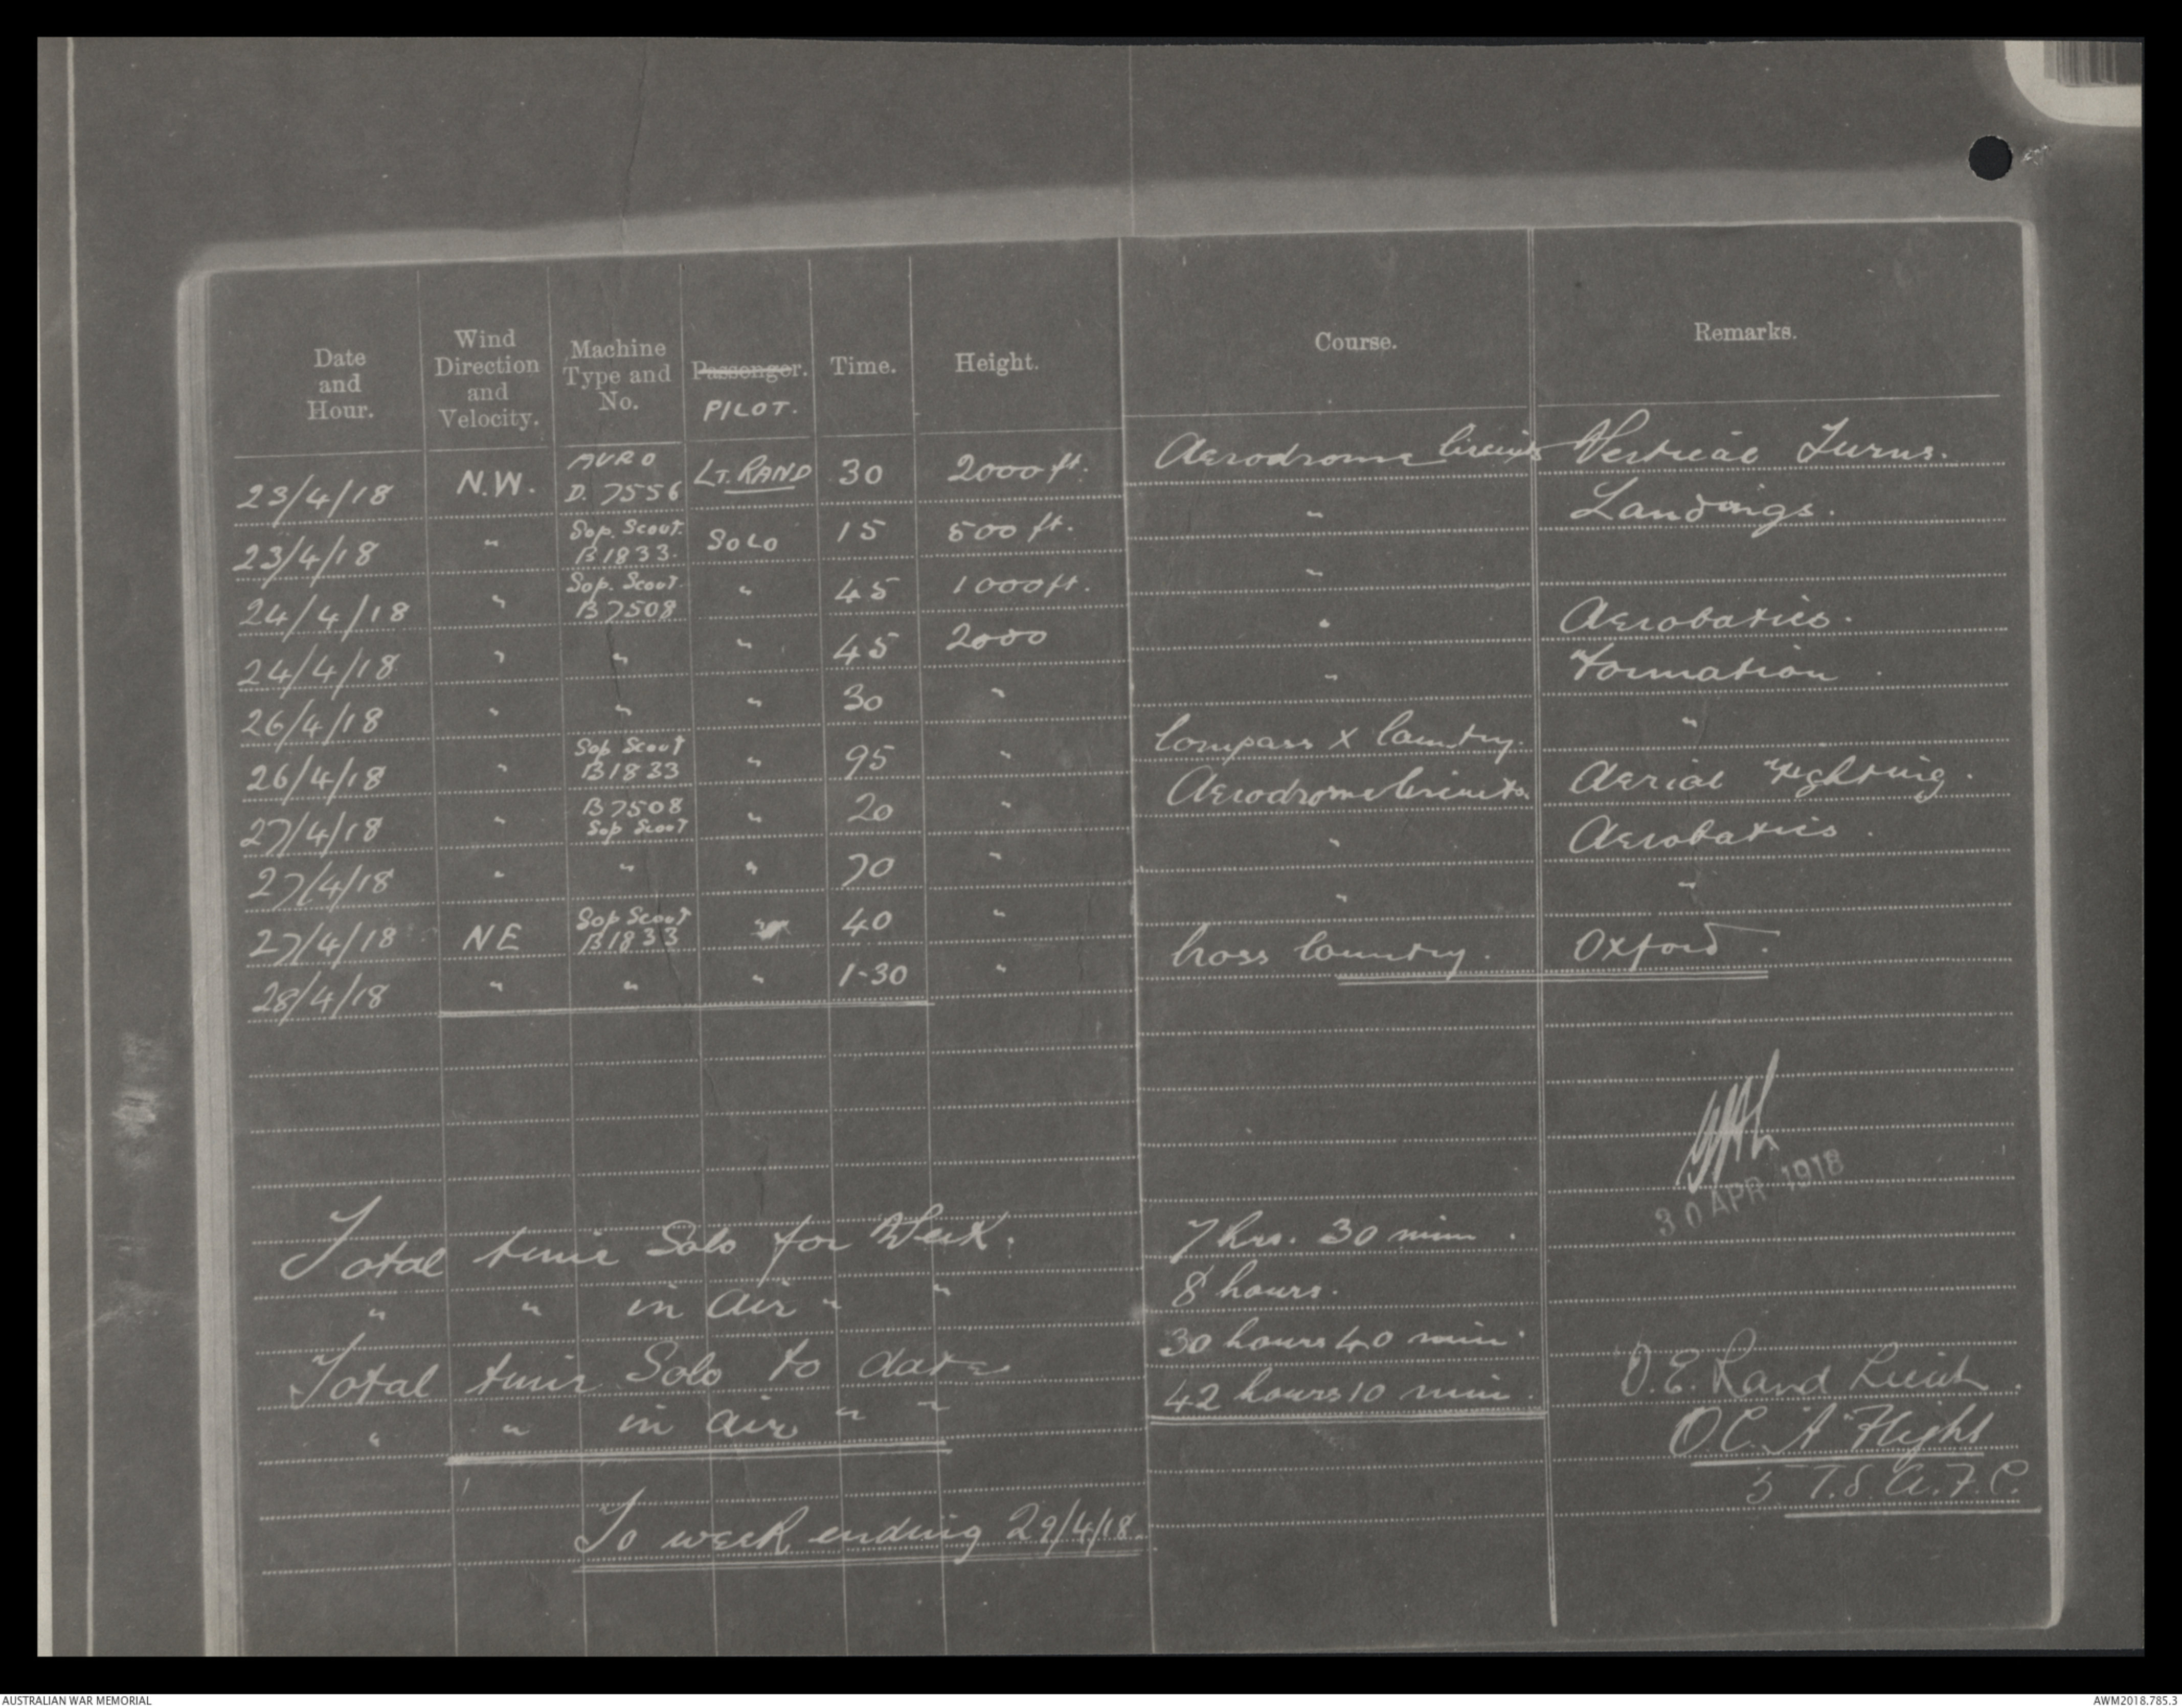 Date and Hour. Wind Direction and Velocity. Machine Type and No. Passenger. PILOT. Time. Height. Course. Remarks.
23/4/18 N.W. AVRO D. 7556 LT. RAND 30 2000 ft. Aerodrome Circuits Vertical Turns.
23/4/18 " Sop. Scout. B1833. SOLO 15 500 ft. " Landings.
24/4/18 " Sop. Scout. B7508 " 45 1000 ft. "
24/4/18 " " " 45 2000 " Aerobatics.
26/4/18 " " " 30 " " Formation.
26/4/18 " Sop Scout B1833 " 95 " Compass X Country. "
27/4/18 " B7508 Sop Scout " 20 " Aerodrome Circuits. Aerial Fighting.
27/4/18 " " " 70 " " Aerobatics.
27/4/18 NE Sop Scout B1833 " 40 " " "
28/4/18 " " " 1-30 " Cross Country. Oxford.
30 APR 1918
Total time Solo for Week. 7 hrs. 30 mim.
" " in air " " 8 hours.
Total time Solo to date 30 hours 40 mim.
" " in air " " 42 hours 10 mim.
D.E. Rand Lieut.
O.C. "A" Flight
5 T.S. A.F.C.
To week ending 29/4/18.
AUSTRALIAN WAR MEMORIAL
AWM2018.785.3